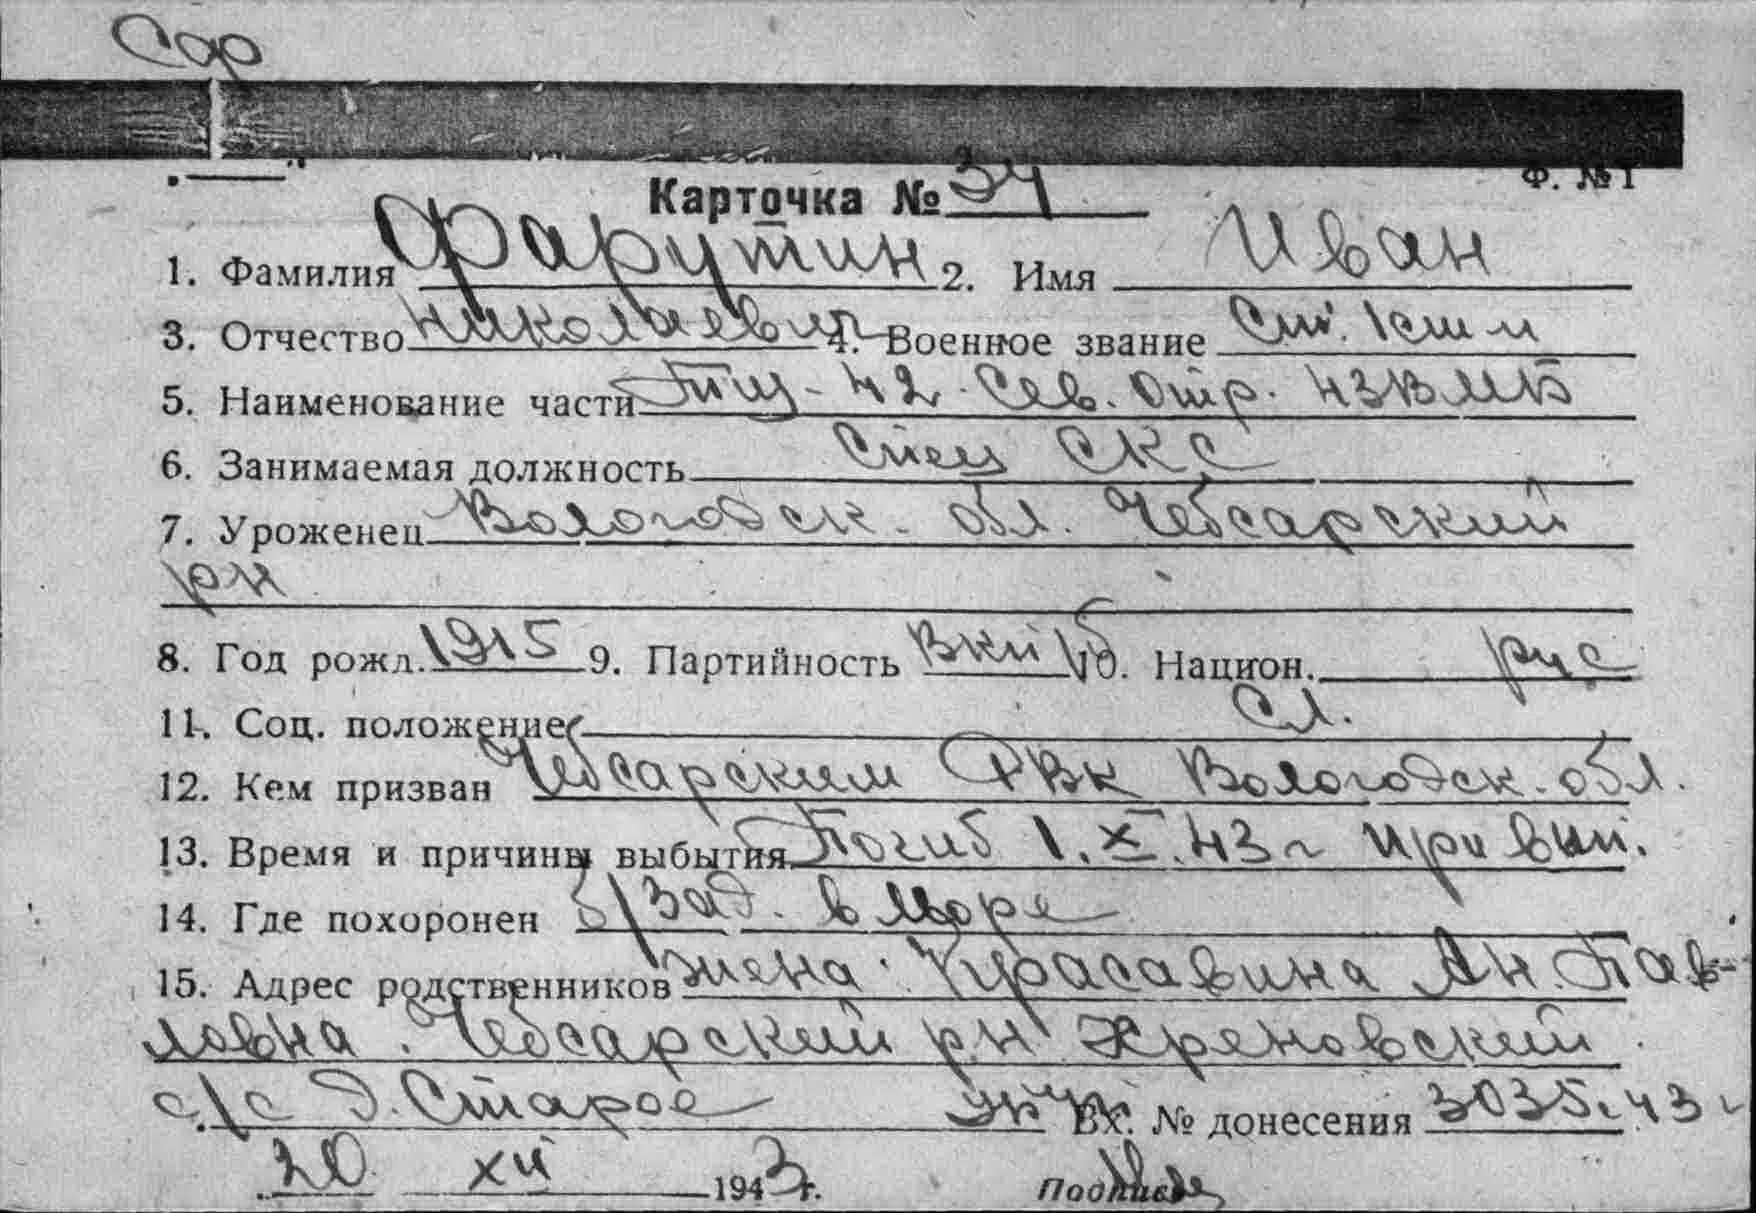 Сар
Ф. № 1
Карточка № 34
1. Фамилия Фарутин 2. Имя Иван
3. Отчество Николаевич 4. Военное звание
5. Наименование части - 42. Сев. Отр. ЧЗВМБ
6. Занимаемая должность Спец СКС
7. Уроженец Вологодск. обл. Чебсарский
рн
8. Год рожд. 1915 9. Партийность ВКП/б 10. Национ. рус
11. Соц. положение Сл.
12. Кем призван Чебсарским РВК Вологодск. обл.
13. Время и причины выбытия Погиб 1.X.43 г при вып.
14. Где похоронен б/зад. в море
15. Адрес родственников жена. Красавина Ан. Пав-
ловна. Чебсарский рн Хреновский
с/с д. Старое Вх. № донесения 3035. 43 г
20 XII 1943 г. Подпись